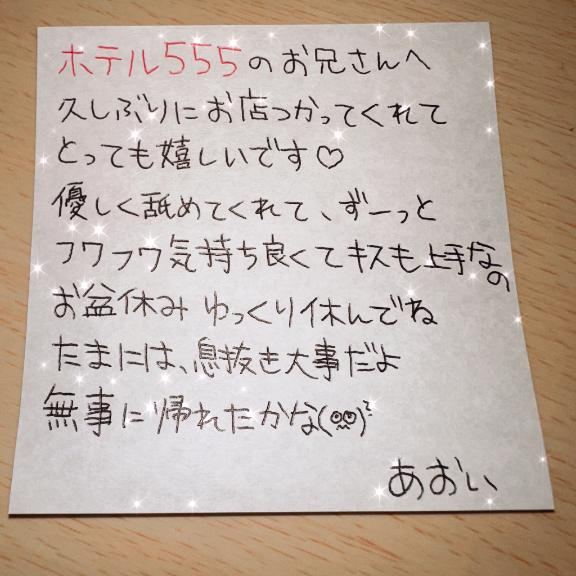 ホテル555のお兄さんへ
久しぶりにお店つかってくれて
とっても嬉しいです♡
優しく舐めてくれて、ずーっと
フワフワ気持ち良くてキスも上手なの
お盆休みゆっくり休んでね
たまには、息抜き大事だよ
無事に帰れたかな
あおい